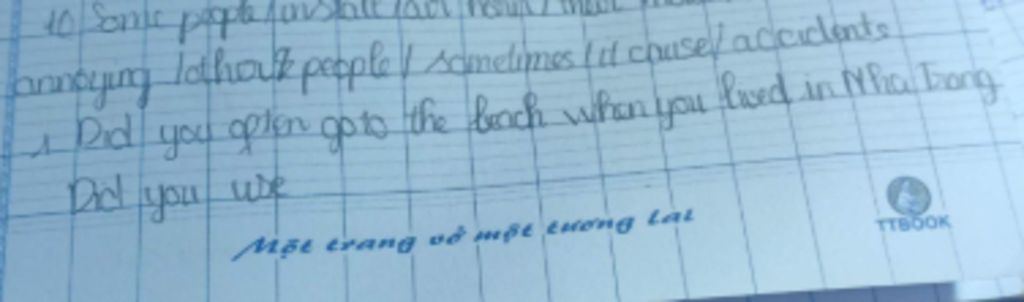 10 Some people
annoying /other people/ sometimes /it chuse/ accidents
1 Did you often go to the beach when you lived in Nha Trang
Did you use
Một trang vở một tương lai
TTBOOK